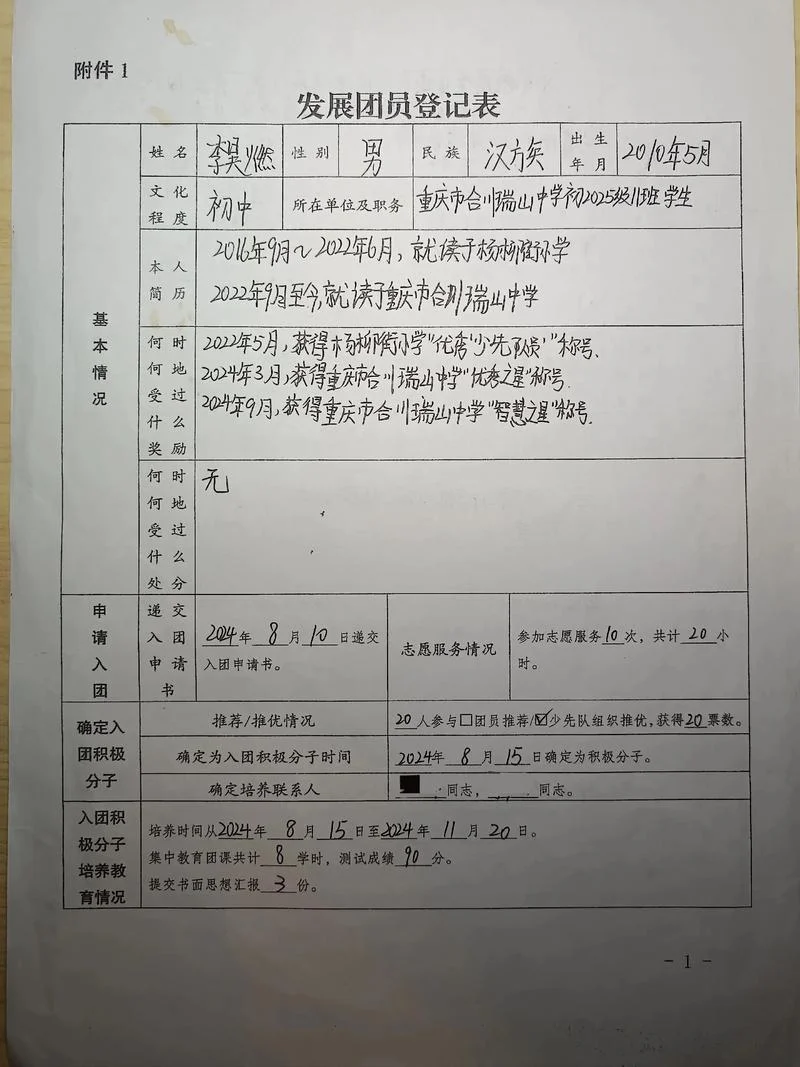 附件1
发展团员登记表
姓名 李昊燃 性别 男 民族 汉族 出生年月 2010年5月
文化程度 初中 所在单位及职务 重庆市合川瑞山中学初2025级11班学生
基本情况
本人简历
2016年9月～2022年6月，就读于杨柳街小学
2022年9月至今，就读于重庆市合川瑞山中学
何时何地受过什么奖励
2022年5月，获得杨柳街小学"优秀少先队员"称号．
2024年3月，获得重庆市合川瑞山中学"优秀之星"称号．
2024年9月，获得重庆市合川瑞山中学"智慧之星"称号．
何时何地受过什么处分
无
申请入团
递交入团申请书
2024年8月10日递交
入团申请书。
志愿服务情况
参加志愿服务10次，共计20小
时。
确定入团积极分子
推荐/推优情况 20人参与☐团员推荐/☑少先队组织推优，获得20票数。
确定为入团积极分子时间 2024年8月15日确定为积极分子。
确定培养联系人 同志， 同志。
入团积极分子培养教育情况
培养时间从2024年8月15日至2024年11月20日。
集中教育团课共计8学时，测试成绩90分。
提交书面思想汇报3份。
- 1 -